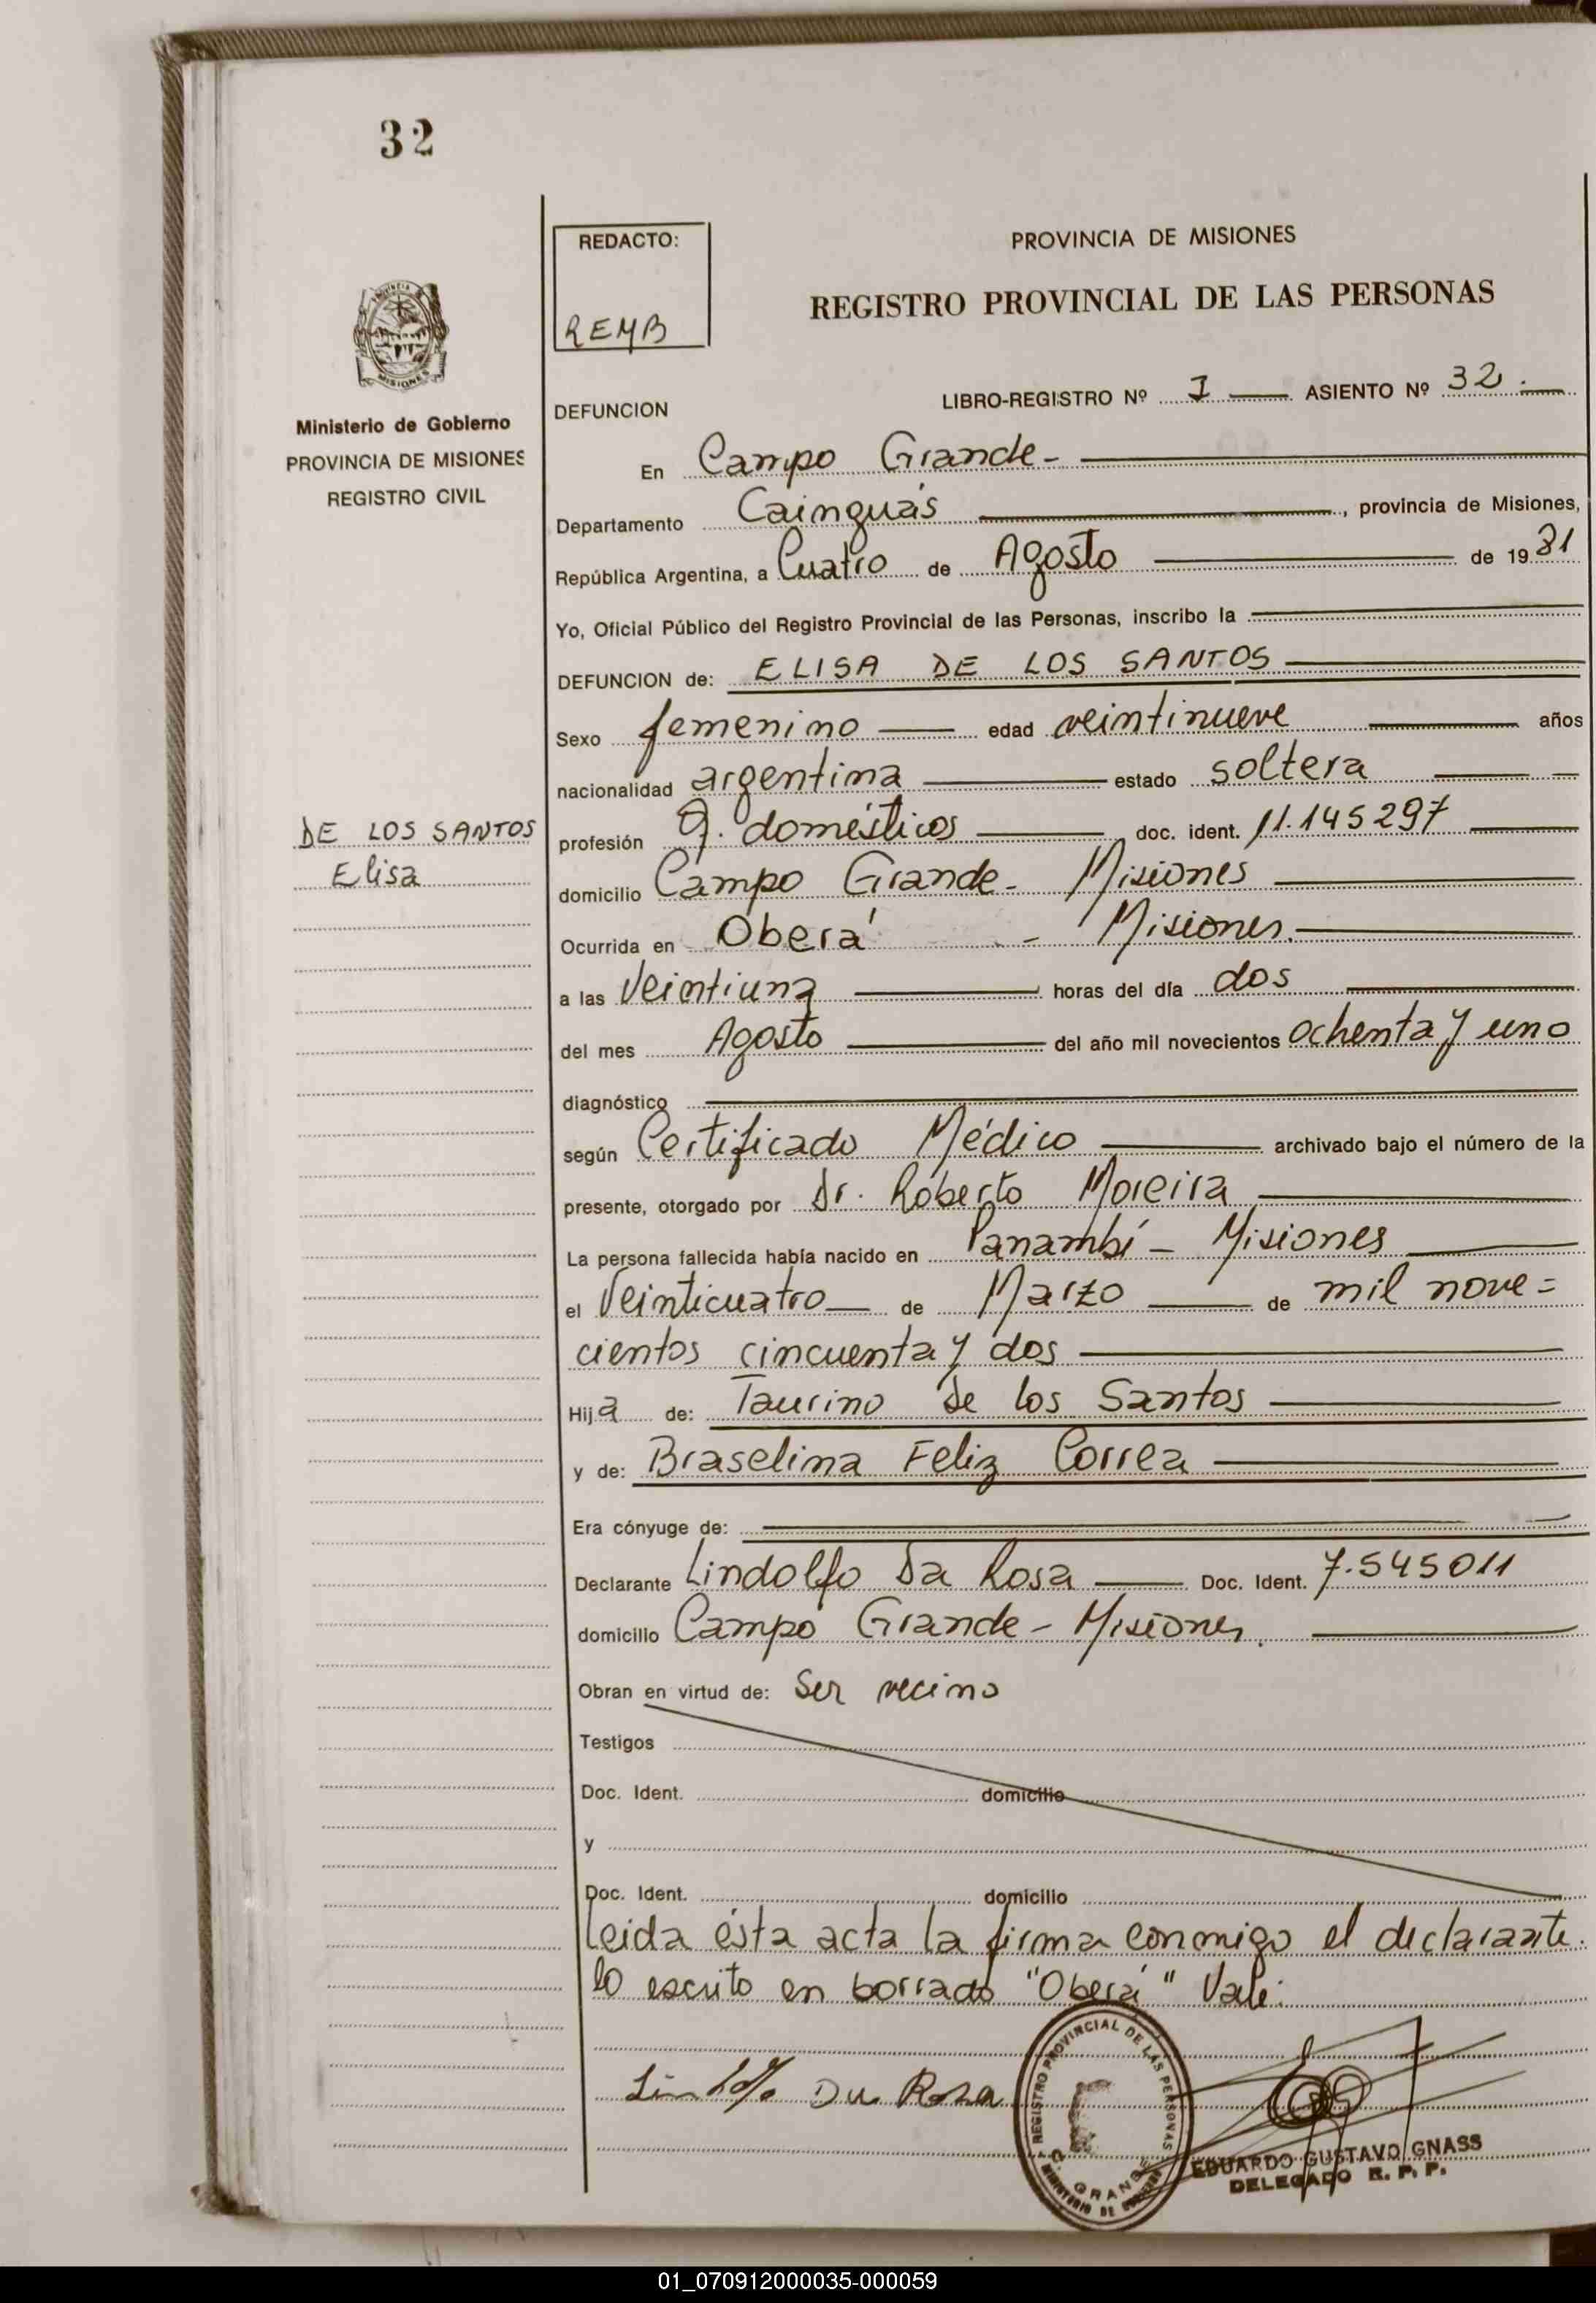 32
REDACTO:
REMB
PROVINCIA DE MISIONES
REGISTRO PROVINCIAL DE LAS PERSONAS
MISIONES
Ministerio de Gobierno
PROVINCIA DE MISIONES
REGISTRO CIVIL
DEFUNCION
LIBRO-REGISTRO Nº I ASIENTO Nº 32.
En Campo Grande-
Departamento Cainguás, provincia de Misiones,
República Argentina, a Cuatro de Agosto de 1981
Yo, Oficial Público del Registro Provincial de las Personas, inscribo la
DEFUNCION de: ELISA DE LOS SANTOS
Sexo femenino edad veintinueve años
nacionalidad argentina estado soltera
DE LOS SANTOS
Elisa
profesión Q. domésticos doc. ident. 11.145297
domicilio Campo Grande- Misiones
Ocurrida en Oberá - Misiones.
a las Veintiuna horas del día dos
del mes Agosto del año mil novecientos ochenta y uno
diagnóstico
según Certificado Médico archivado bajo el número de la
presente, otorgado por Dr. Roberto Moreira
La persona fallecida había nacido en Panambí - Misiones
el Veinticuatro de Marzo de mil nove=
cientos cincuenta y dos
Hija de: Taurino de los Santos
y de: Braselina Feliz Correa
Era cónyuge de:
Declarante Lindolfo Da Rosa Doc. Ident. 7.545011
domicilio Campo Grande - Misiones.
Obran en virtud de: Ser vecino
Testigos
Doc. Ident. domicilio
y
Doc. Ident. domicilio
Leida ésta acta la firma conmigo el declarante.
lo escrito en borrado "Oberá" Vale.
Da Rosa
REGISTRO PROVINCIAL DE LAS PERSONAS
GRANDE
MINISTERIO DE GOBIERNO
EDUARDO GUSTAVO GNASS
DELEGADO R. P. P.
01_070912000035-000059